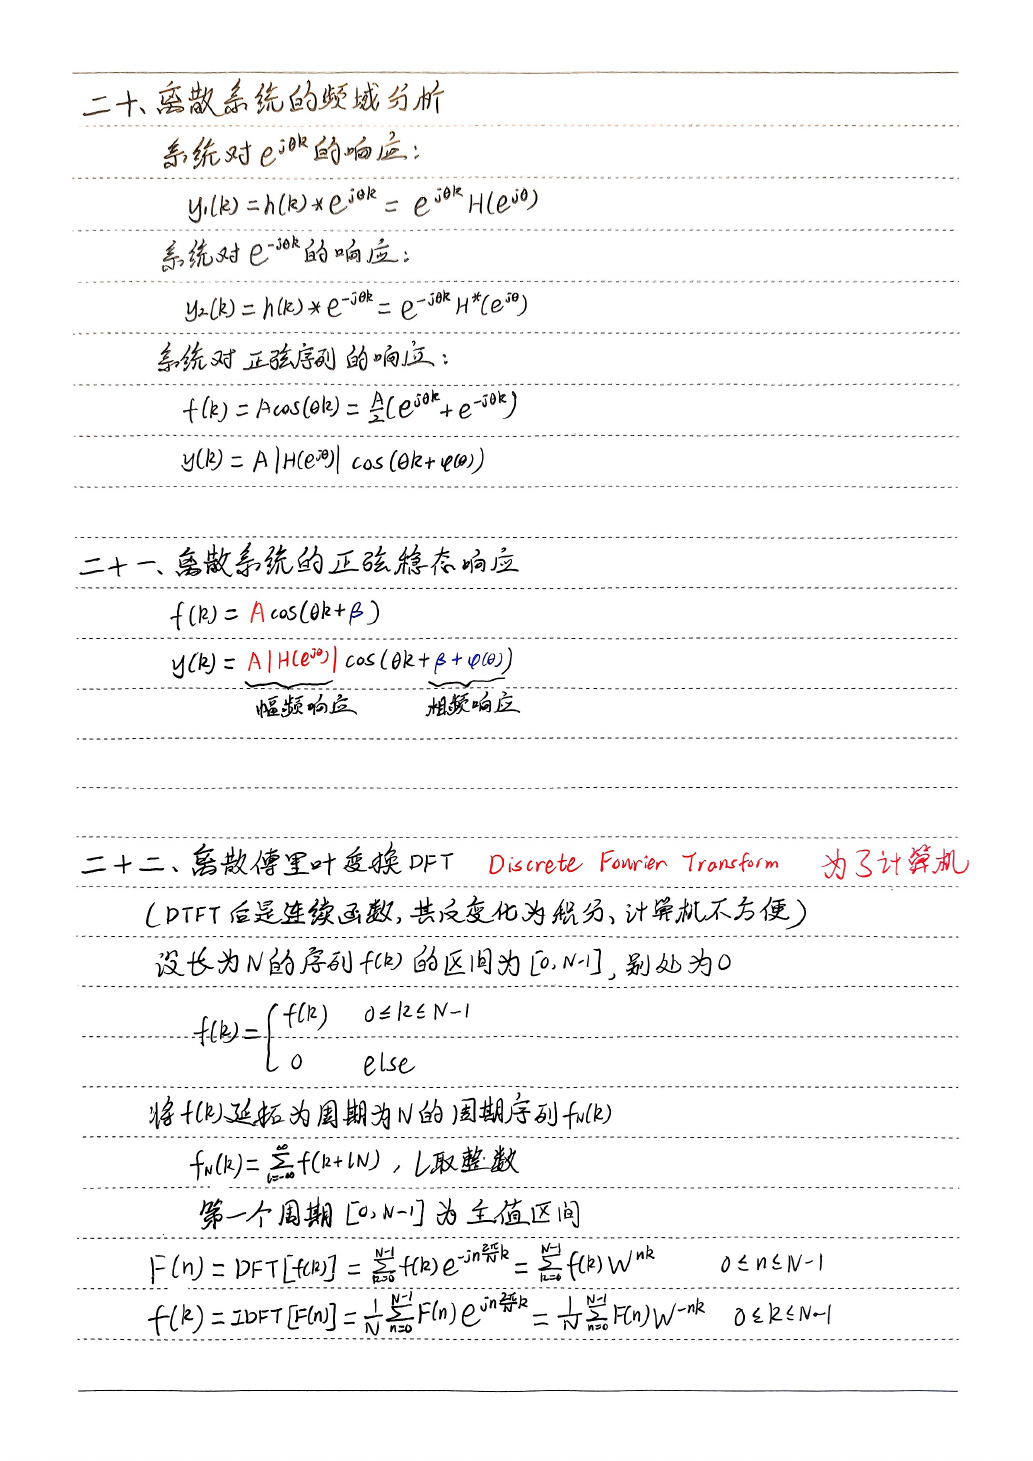 二十、离散系统的频域分析
系统对e^{jθk}的响应:
y₁(k)=h(k)*e^{jθk}=e^{jθk}H(e^{jθ})
系统对e^{-jθk}的响应:
y₂(k)=h(k)*e^{-jθk}=e^{-jθk}H*(e^{jθ})
系统对正弦序列的响应:
f(k)=Acos(θk)=A/2(e^{jθk}+e^{-jθk})
y(k)=A|H(e^{jθ})|cos(θk+φ(θ))
二十一、离散系统的正弦稳态响应
f(k)=Acos(θk+β)
y(k)=A|H(e^{jθ})|cos(θk+β+φ(θ))
幅频响应 相频响应
二十二、离散傅里叶变换DFT Discrete Fourier Transform 为了计算机
(DTFT后是连续函数,其反变化为积分、计算机不方便)
设长为N的序列f(k)的区间为[0,N-1],别处为0
f(k)={f(k) 0≤k≤N-1
0 else
将f(k)延拓为周期为N的周期序列f_N(k)
f_N(k)=∑_{l=-∞}^{∞}f(k+lN),l取整数
第一个周期[0,N-1]为主值区间
F(n)=DFT[f(k)]=∑_{k=0}^{N-1}f(k)e^{-jn\frac{2π}{N}k}=∑_{k=0}^{N-1}f(k)W^{nk} 0≤n≤N-1
f(k)=IDFT[F(n)]=\frac{1}{N}∑_{n=0}^{N-1}F(n)e^{jn\frac{2π}{N}k}=\frac{1}{N}∑_{n=0}^{N-1}F(n)W^{-nk} 0≤k≤N-1